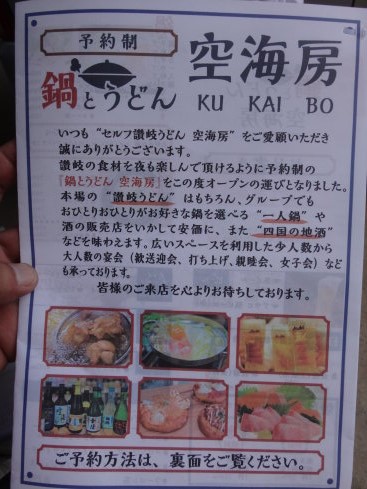 予約制
鍋とうどん
空海房
KU KAI BO
いつも“セルフ讃岐うどん 空海房”をご愛顧いただき
誠にありがとうございます。
讃岐の食材を夜も楽しんで頂けるように予約制の
『鍋とうどん 空海房』をこの度オープンの運びとなりました。
本場の“讃岐うどん”はもちろん、グループでも
おひとりおひとりがお好きな鍋を選べる“一人鍋”や
酒の販売店をいかして安価に、また“四国の地酒”
などを味わえます。広いスペースを利用した少人数から
大人数の宴会（歓送迎会、打ち上げ、親睦会、女子会）なども
承っております。
皆様のご来店を心よりお待ちしております。
ご予約方法は、裏面をご覧ください。